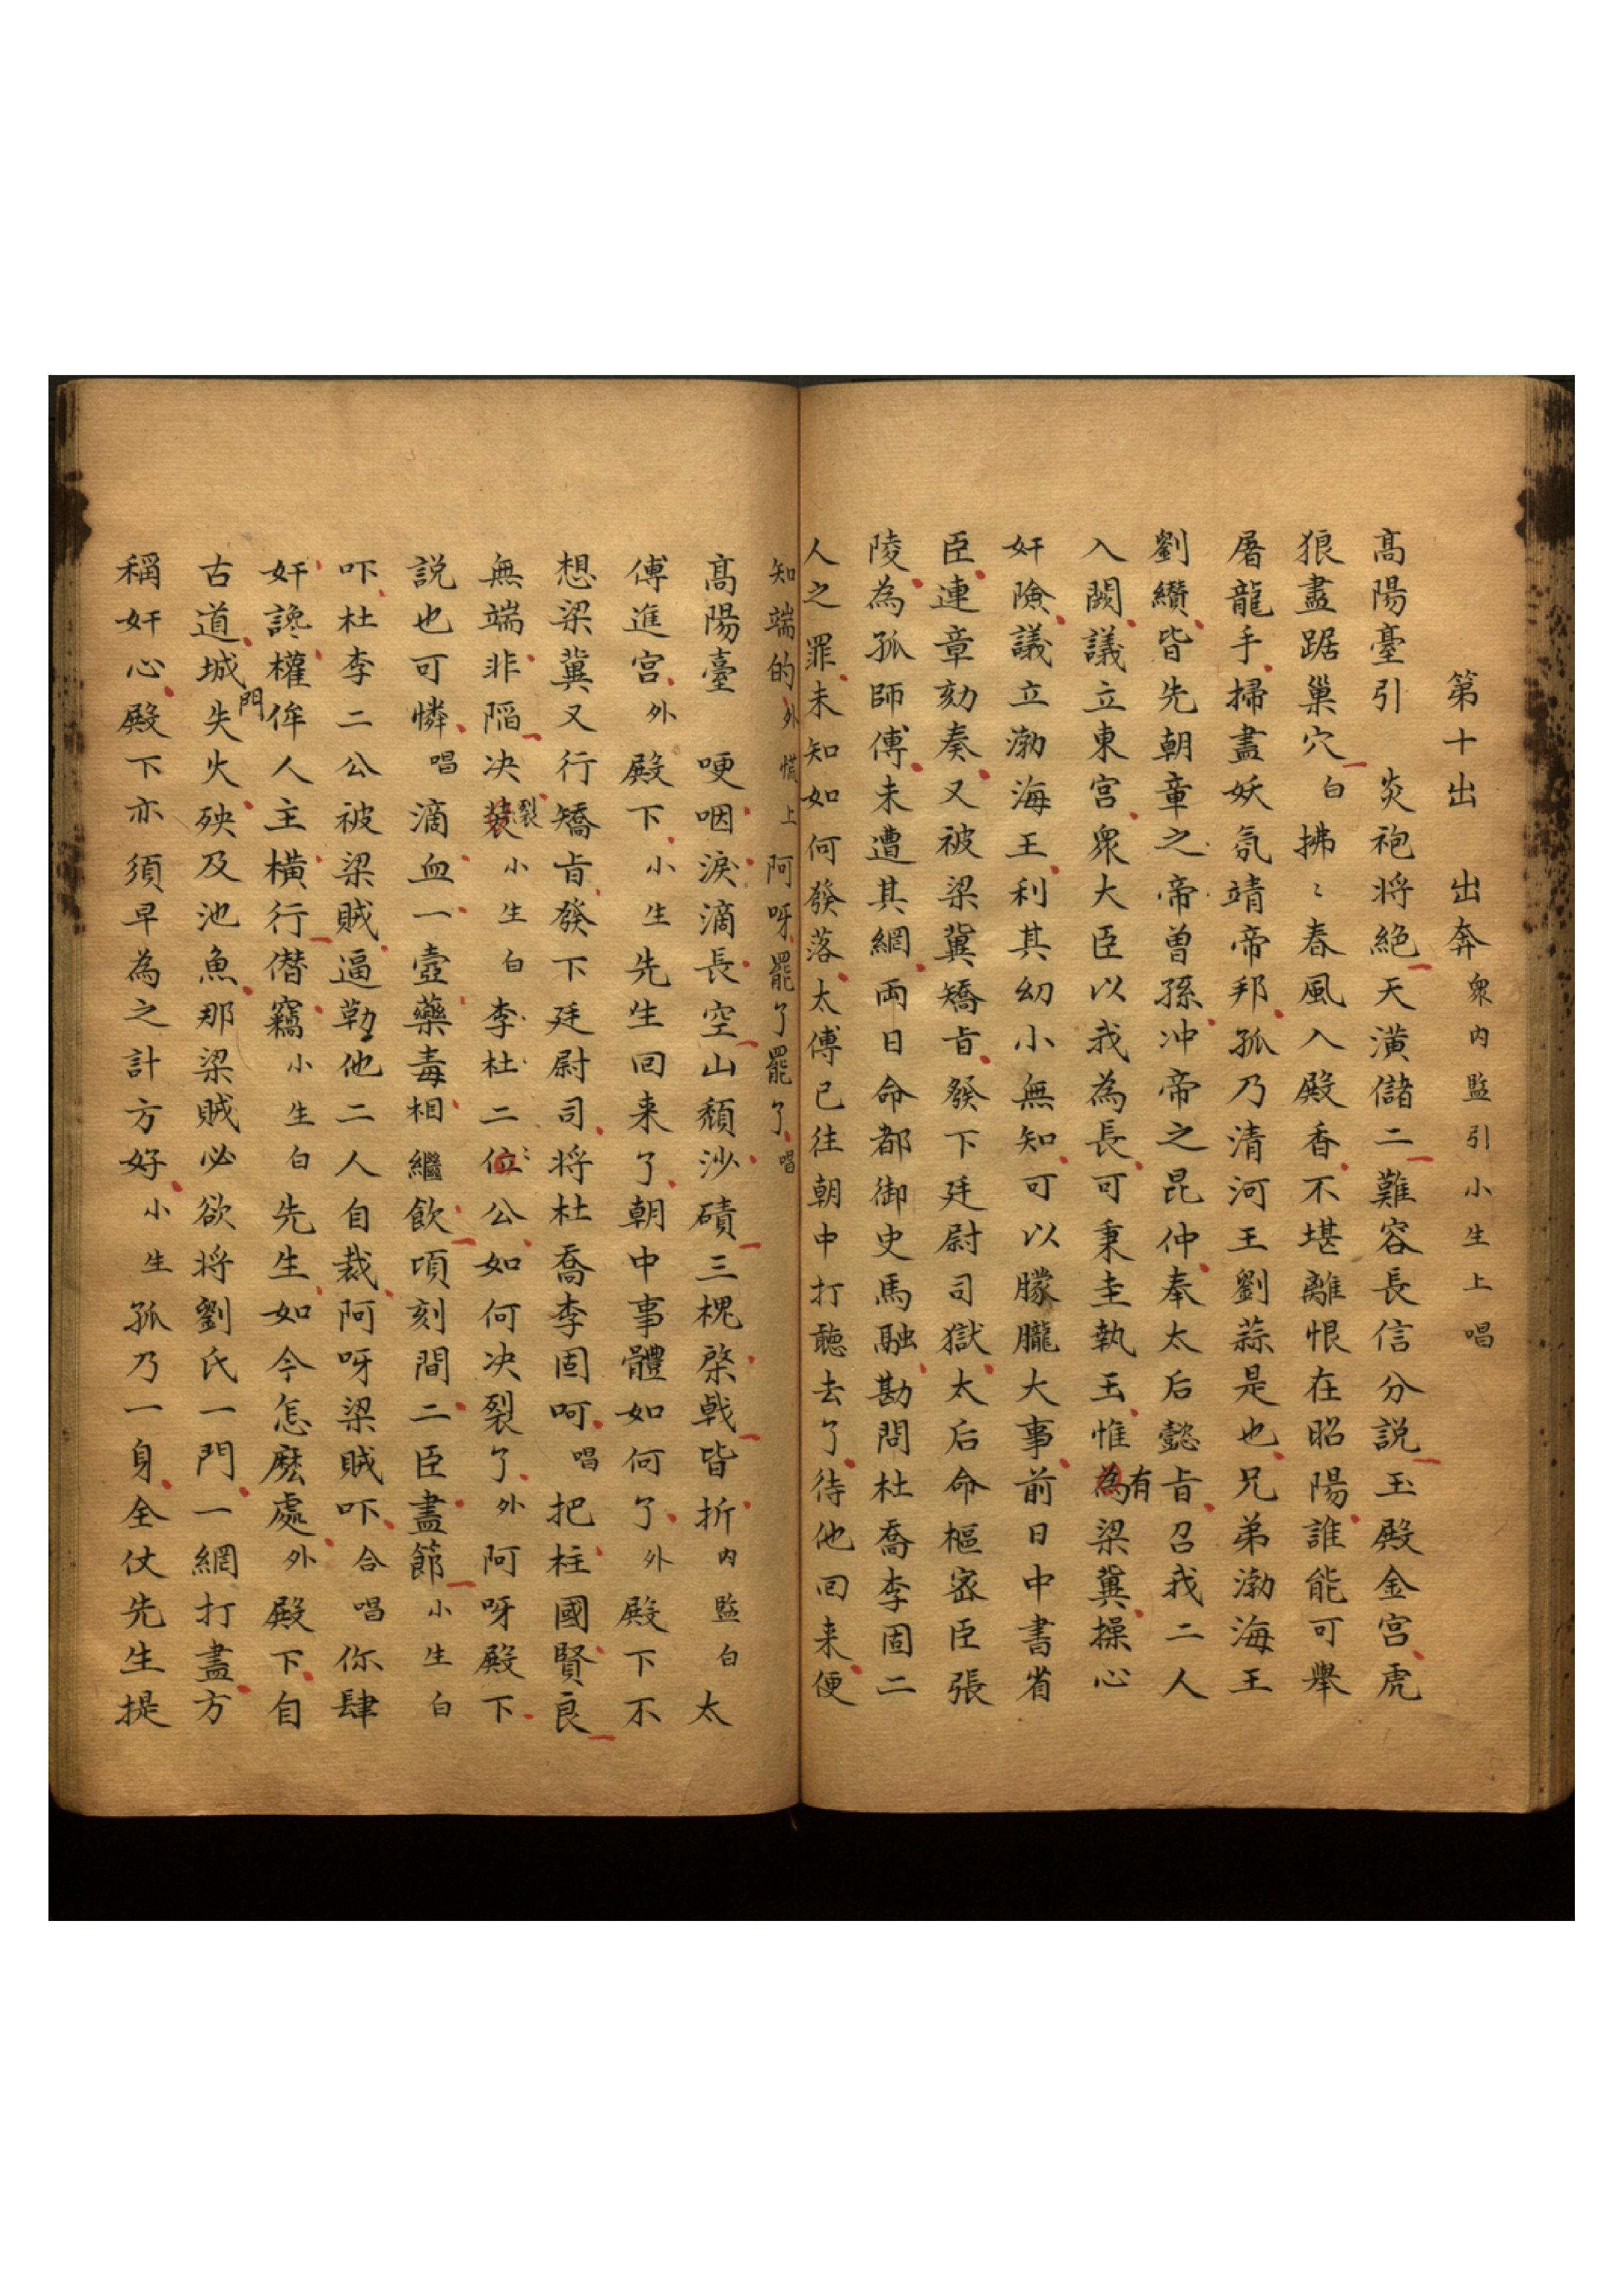 第十出　出奔衆内監引小生上唱
高陽臺引　炎袍将絶天潢儲二難容長信分説玉殿金宮虎
狼盡踞巢穴白拂〻春風入殿香不堪離恨在昭陽誰能可舉
屠龍手掃盡妖氛靖帝邦孤乃清河王劉蒜是也兄弟渤海王
劉纘皆先朝章之帝曾孫冲帝之昆仲奉太后懿旨召我二人
入闕議立東宮衆大臣以我為長可秉圭執玉惟為有梁冀操心
奸險議立渤海王利其幼小無知可以朦朧大事前日中書省
臣連章劾奏又被梁冀矯旨發下廷尉司獄太后命樞密臣張
陵為孤師傅未遭其網両日命都御史馬融勘問杜喬李固二
人之罪未知如何發落太傅已往朝中打聽去了待他回来便
知端的外慌上阿呀罷了罷了唱
高陽臺　哽咽淚滴長空山頹沙磧三槐棨戟皆折内監白太
傅進宮外殿下小生先生回来了朝中事體如何了外殿下不
想梁冀又行矯旨發下廷尉司将杜喬李固呵唱把柱國賢良
無端非陷决裝裂小生白李杜二位公如何决裂了外阿呀殿下
説也可憐唱滴血一壺藥毒相繼飲頃刻間二臣盡節小生白
吓杜李二公被梁賊逼勒他二人自裁阿呀梁賊吓合唱你肆
奸讒權侔人主橫行僭竊小生白先生如今怎麽處外殿下自
古道城門失火殃及池魚那梁賊必欲将劉氏一門一網打盡方
稱奸心殿下亦須早為之計方好小生孤乃一身全仗先生提